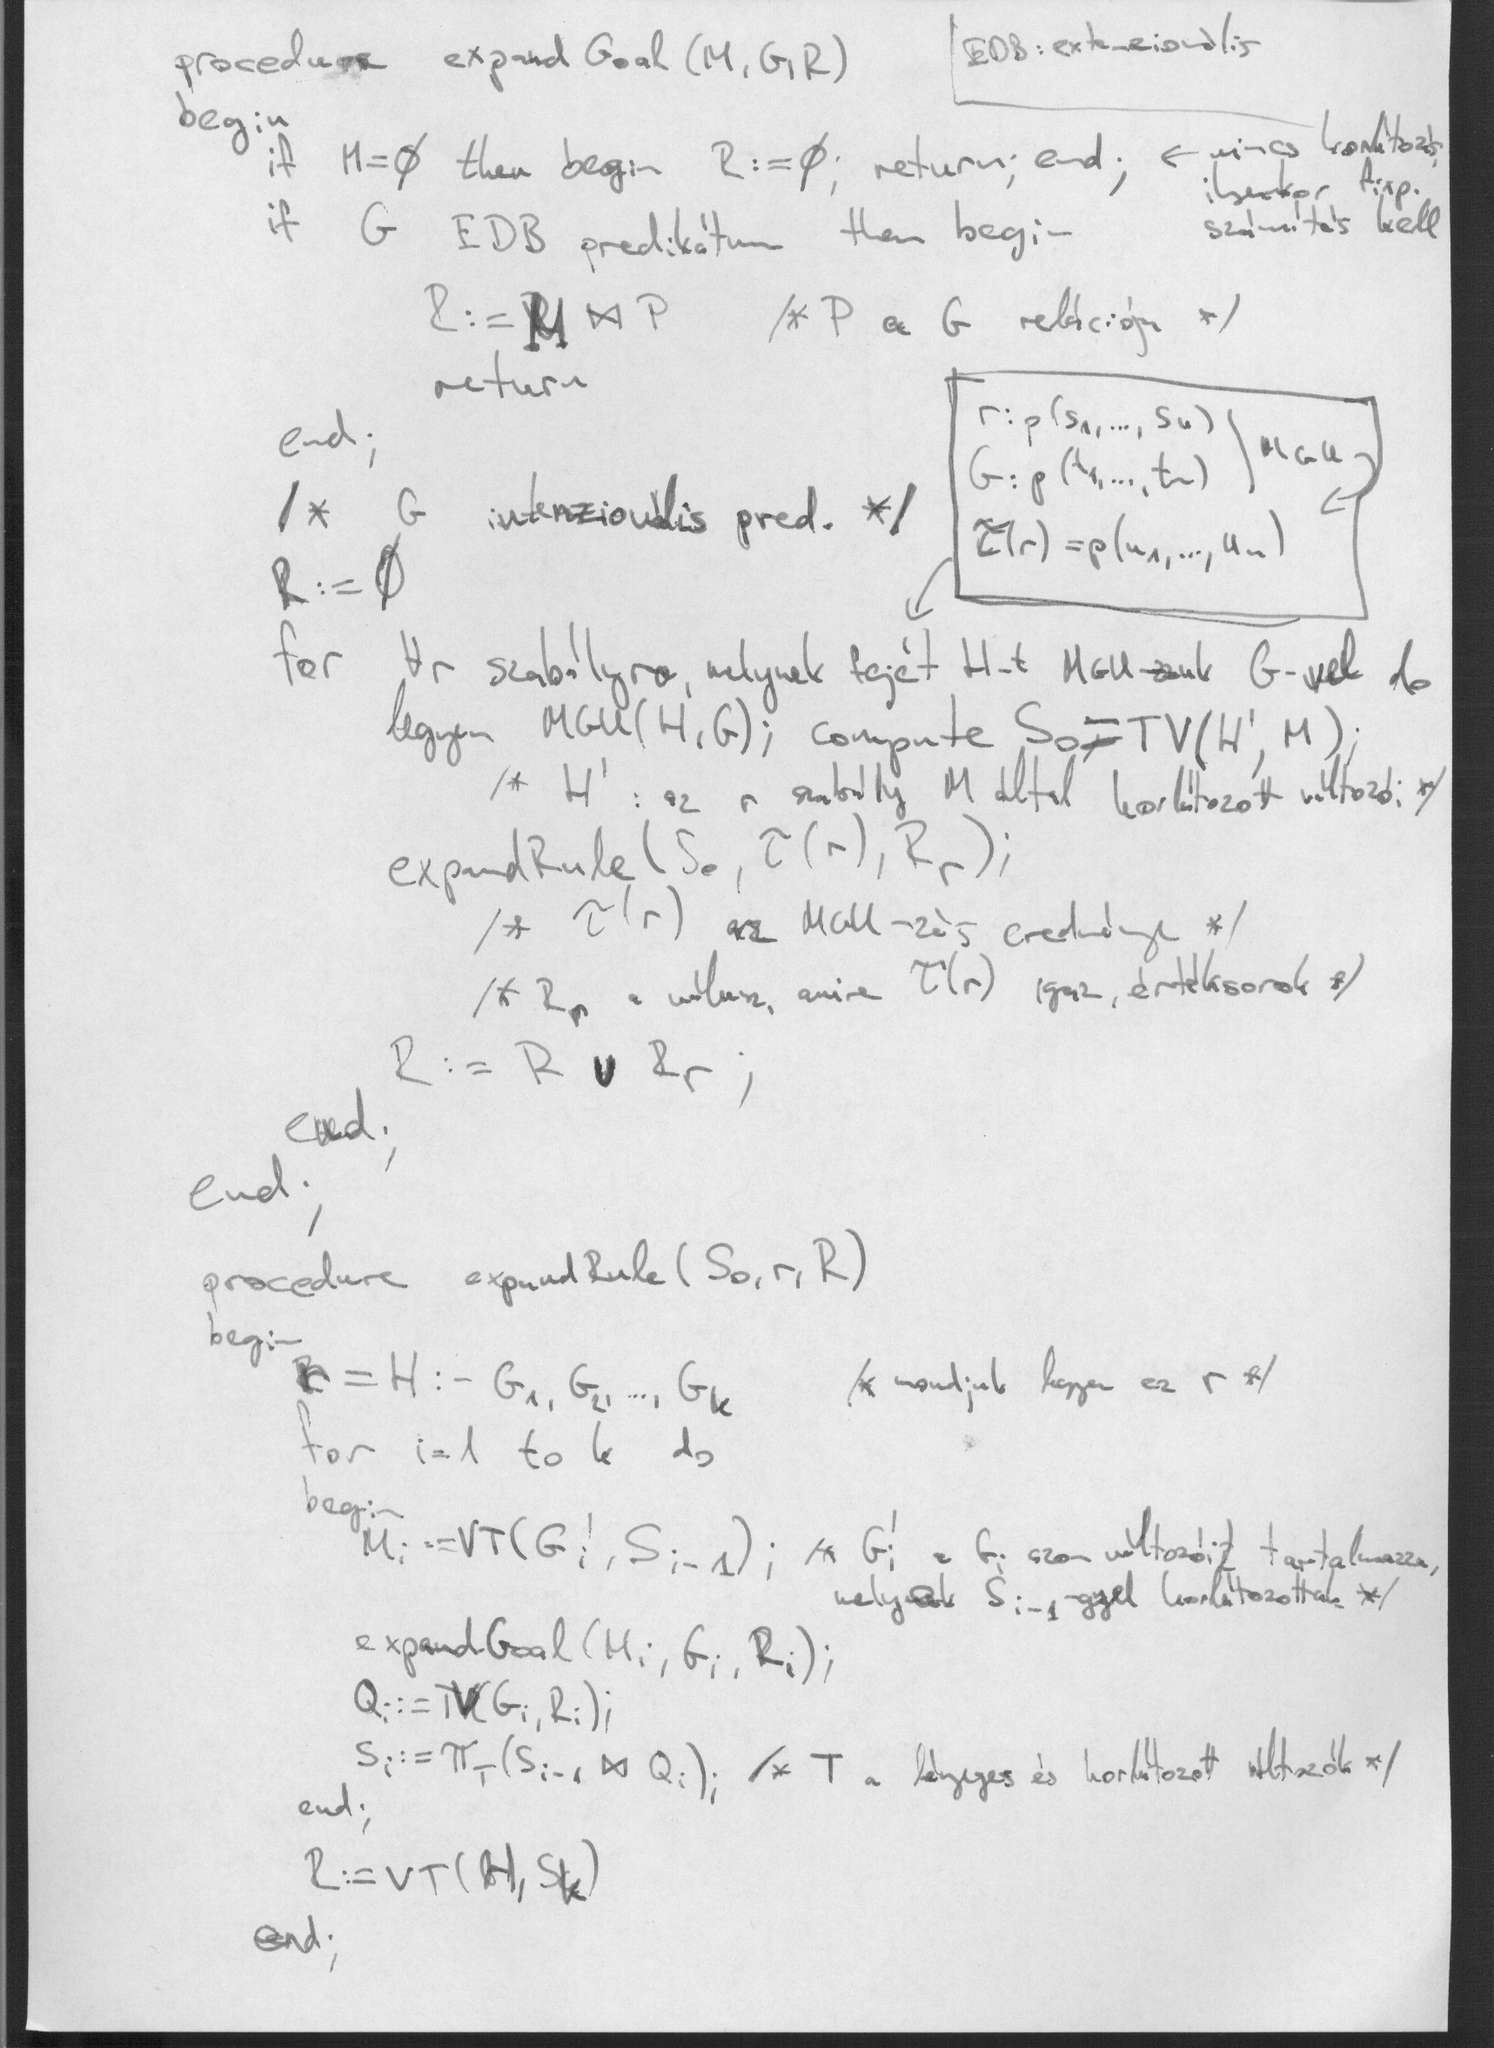 procedure expandGoal(M, G, R)
EDB: extenzionális
begin
if M=∅ then begin R:=∅; return; end; ← nincs korlátozás,
ilyenkor fixp.
számítás kell
if G EDB predikátum then begin
R:= M ⋈ P /* P a G relációja */
return
end;
r: p(s₁,...,sₙ)
G: p(t₁,...,tₙ)
MGU
τ(r) = p(u₁,...,uₙ)
/* G intenzionális pred. */
R := ∅
for ∀r szabályra, melynek fejét H-t MGU-zunk G-vel do
legyen MGU(H,G); compute S₀=TV(H', M);
/* H' : az r szabály M által korlátozott változói */
expandRule(S₀, τ(r), Rᵣ);
/* τ(r) az MGU-zás eredménye */
/* Rᵣ a válasz, amire τ(r) igaz, értéksorok */
R := R ∪ Rᵣ ;
end;
end;
procedure expandRule(S₀, r, R)
begin
r = H :- G₁, G₂, ..., Gₖ /* mondjuk legyen ez r */
for i=1 to k do
begin
Mᵢ:=VT(Gᵢ', Sᵢ₋₁); /* Gᵢ' a Gᵢ azon változóit tartalmazza,
melyek Sᵢ₋₁-gyel korlátozottak */
expandGoal(Mᵢ, Gᵢ, Rᵢ);
Qᵢ:=TV(Gᵢ, Rᵢ);
Sᵢ:=π_T(Sᵢ₋₁ ⋈ Qᵢ); /* T a lényeges és korlátozott változók */
end;
R:=VT(H, Sₖ)
end;